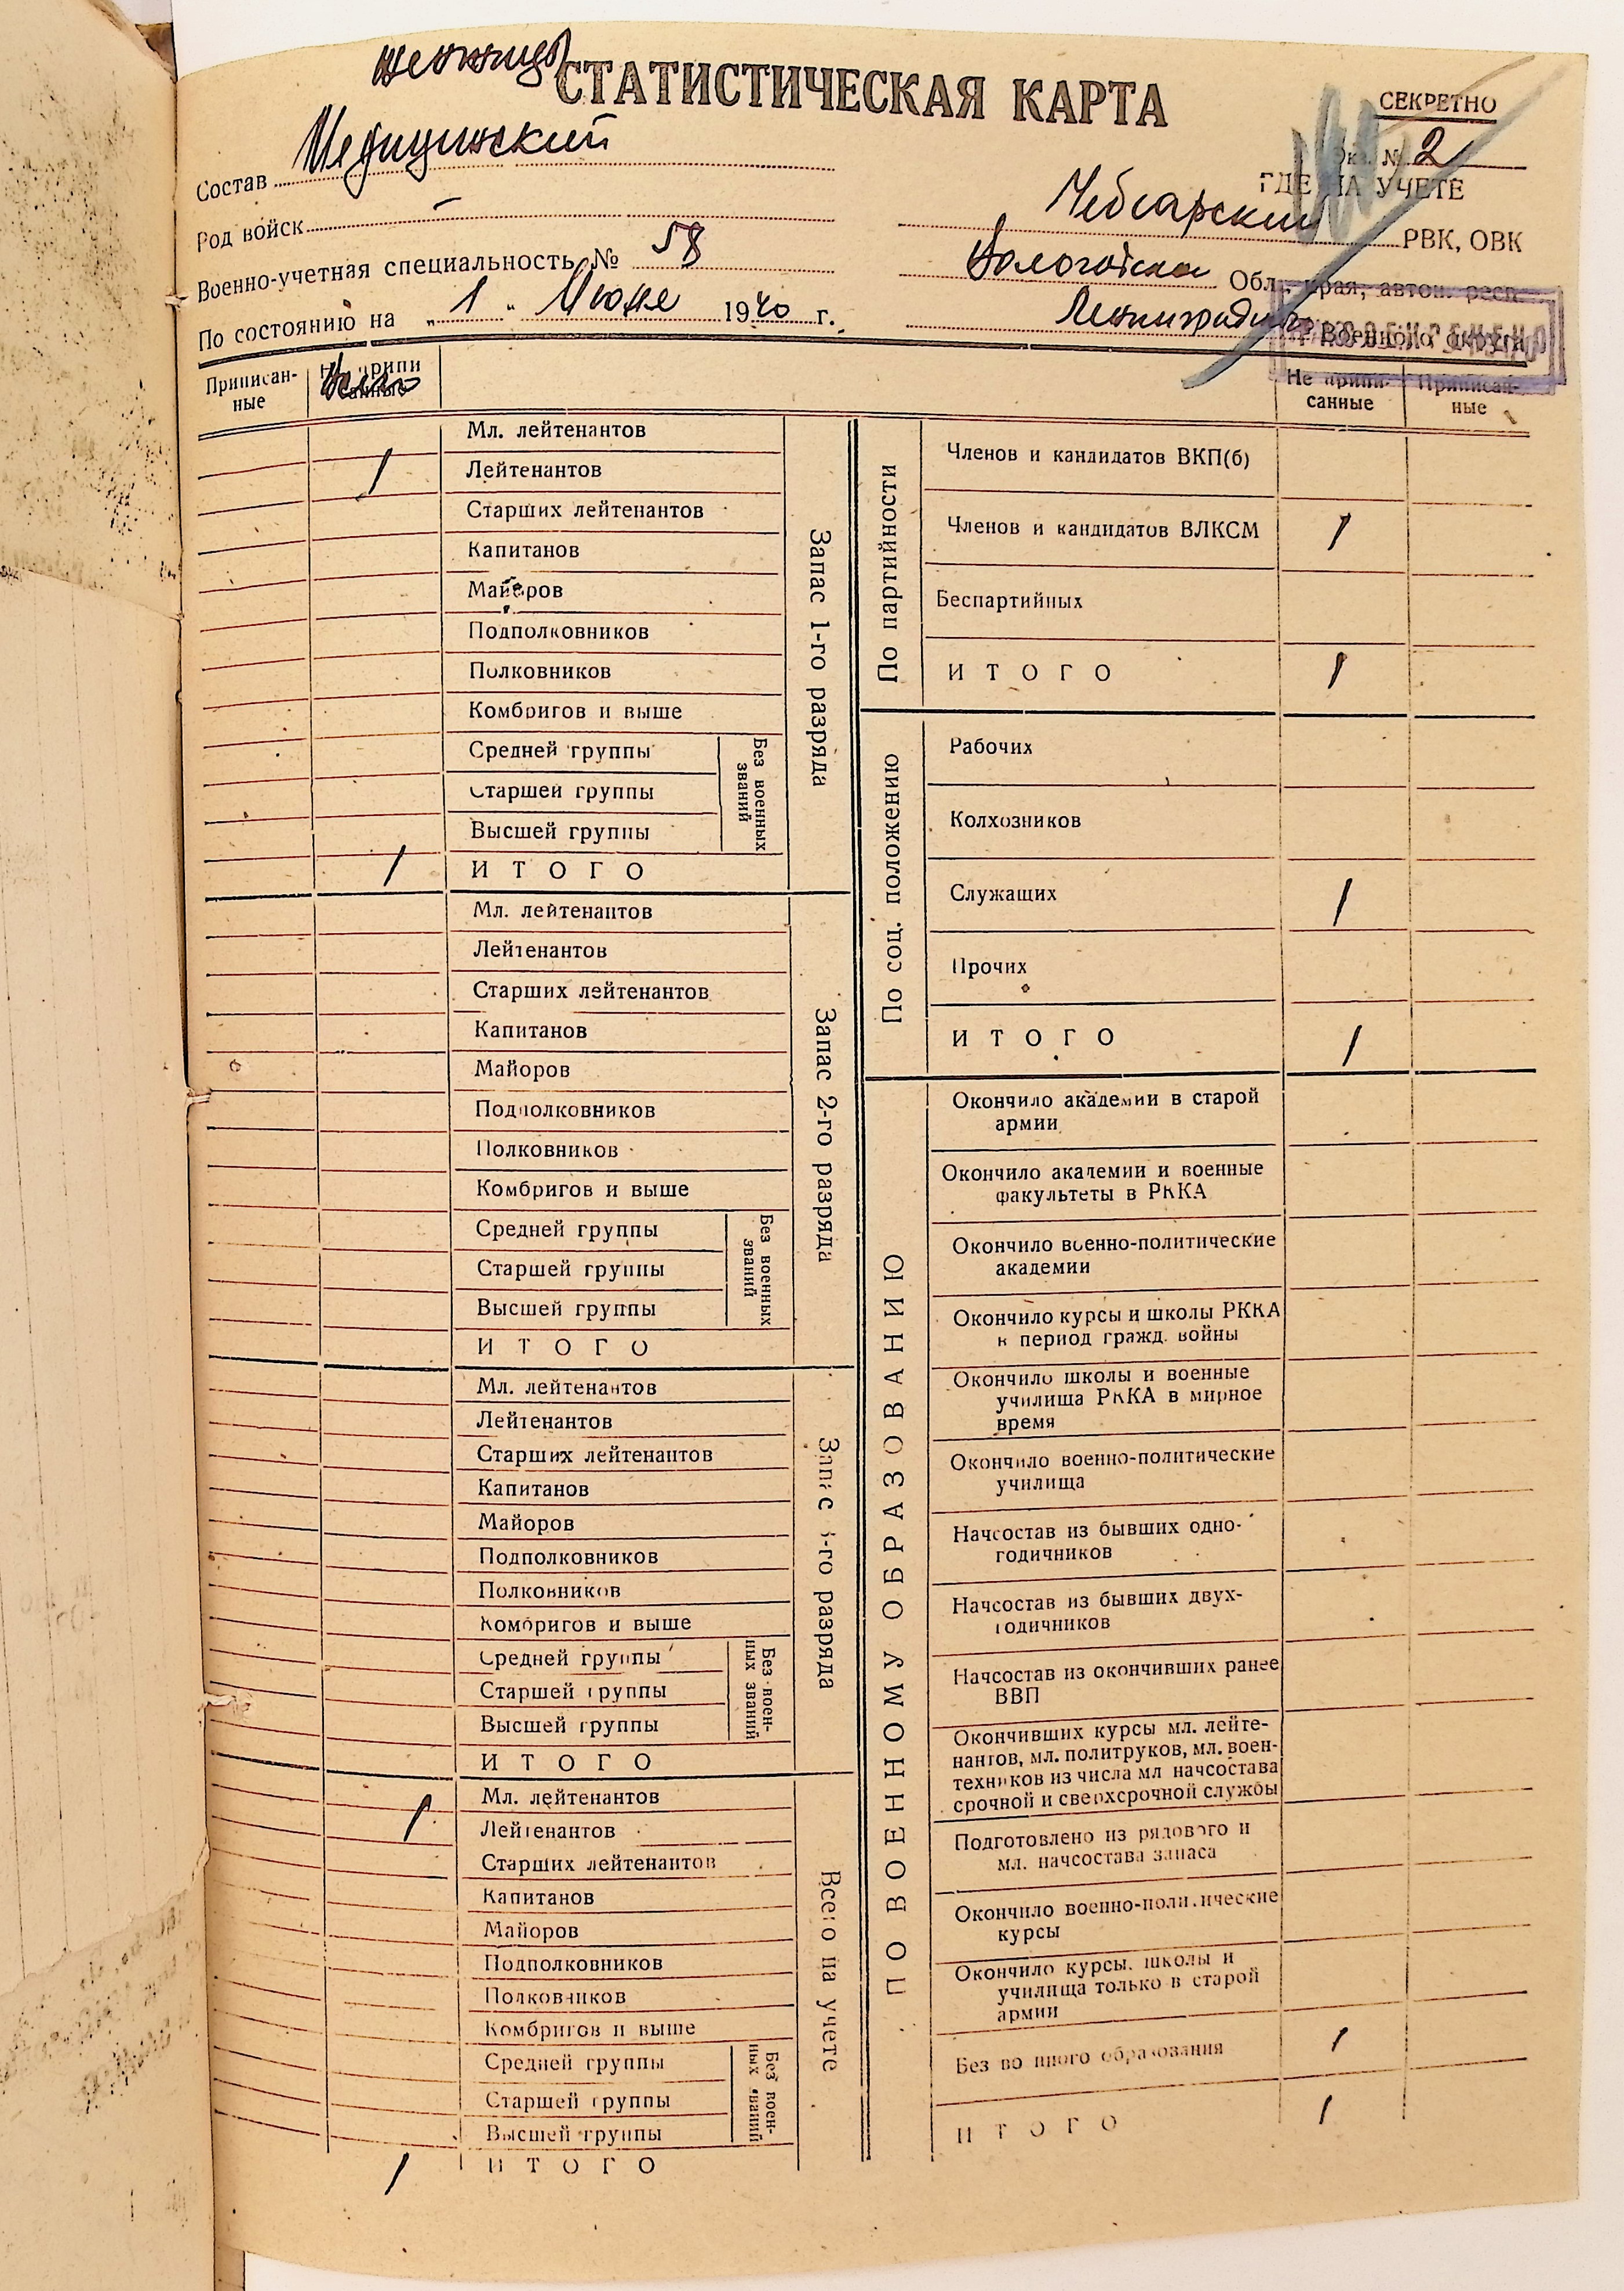 женщина
СТАТИСТИЧЕСКАЯ КАРТА
СЕКРЕТНО
Экз. № 2
Состав Медицинский
Род войск –
Военно-учетная специальность № 58
По состоянию на „1" Июня 1940 г.
ГДЕ НА УЧЕТЕ
Чебсарский РВК, ОВК
Вологодская Обл., края, автон. респ.
Ленинградского Военного округа
Приписан-
ные
Не припи
санные
Не припи-
санные
Приписан-
ные
Запас 1-го разряда
Мл. лейтенантов
Лейтенантов 1
Старших лейтенантов
Капитанов
Майоров
Подполковников
Полковников
Комбригов и выше
Без военных
званий
Средней группы
Старшей группы
Высшей группы
ИТОГО 1
Запас 2-го разряда
Мл. лейтенантов
Лейтенантов
Старших лейтенантов
Капитанов
Майоров
Подполковников
Полковников
Комбригов и выше
Без военных
званий
Средней группы
Старшей группы
Высшей группы
ИТОГО
Запас 3-го разряда
Мл. лейтенантов
Лейтенантов
Старших лейтенантов
Капитанов
Майоров
Подполковников
Полковников
Комбригов и выше
Без воен-
ных званий
Средней группы
Старшей группы
Высшей группы
ИТОГО
Всего на учете
Мл. лейтенантов
Лейтенантов 1
Старших лейтенантов
Капитанов
Майоров
Подполковников
Полковников
Комбригов и выше
Без воен-
ных званий
Средней группы
Старшей группы
Высшей группы
ИТОГО 1
По партийности
Членов и кандидатов ВКП(б)
Членов и кандидатов ВЛКСМ 1
Беспартийных
ИТОГО 1
По соц. положению
Рабочих
Колхозников
Служащих 1
Прочих
ИТОГО 1
ПО ВОЕННОМУ ОБРАЗОВАНИЮ
Окончило академии в старой
армии
Окончило академии и военные
факультеты в РККА
Окончило военно-политические
академии
Окончило курсы и школы РККА
в период гражд. войны
Окончило школы и военные
училища РККА в мирное
время
Окончило военно-политические
училища
Начсостав из бывших одно-
годичников
Начсостав из бывших двух-
годичников
Начсостав из окончивших ранее
ВВП
Окончивших курсы мл. лейте-
нантов, мл. политруков, мл. воен-
техников из числа мл начсостава
срочной и сверхсрочной службы
Подготовлено из рядового и
мл. начсостава запаса
Окончило военно-политические
курсы
Окончило курсы, школы и
училища только в старой
армии
Без военного образования 1
ИТОГО 1